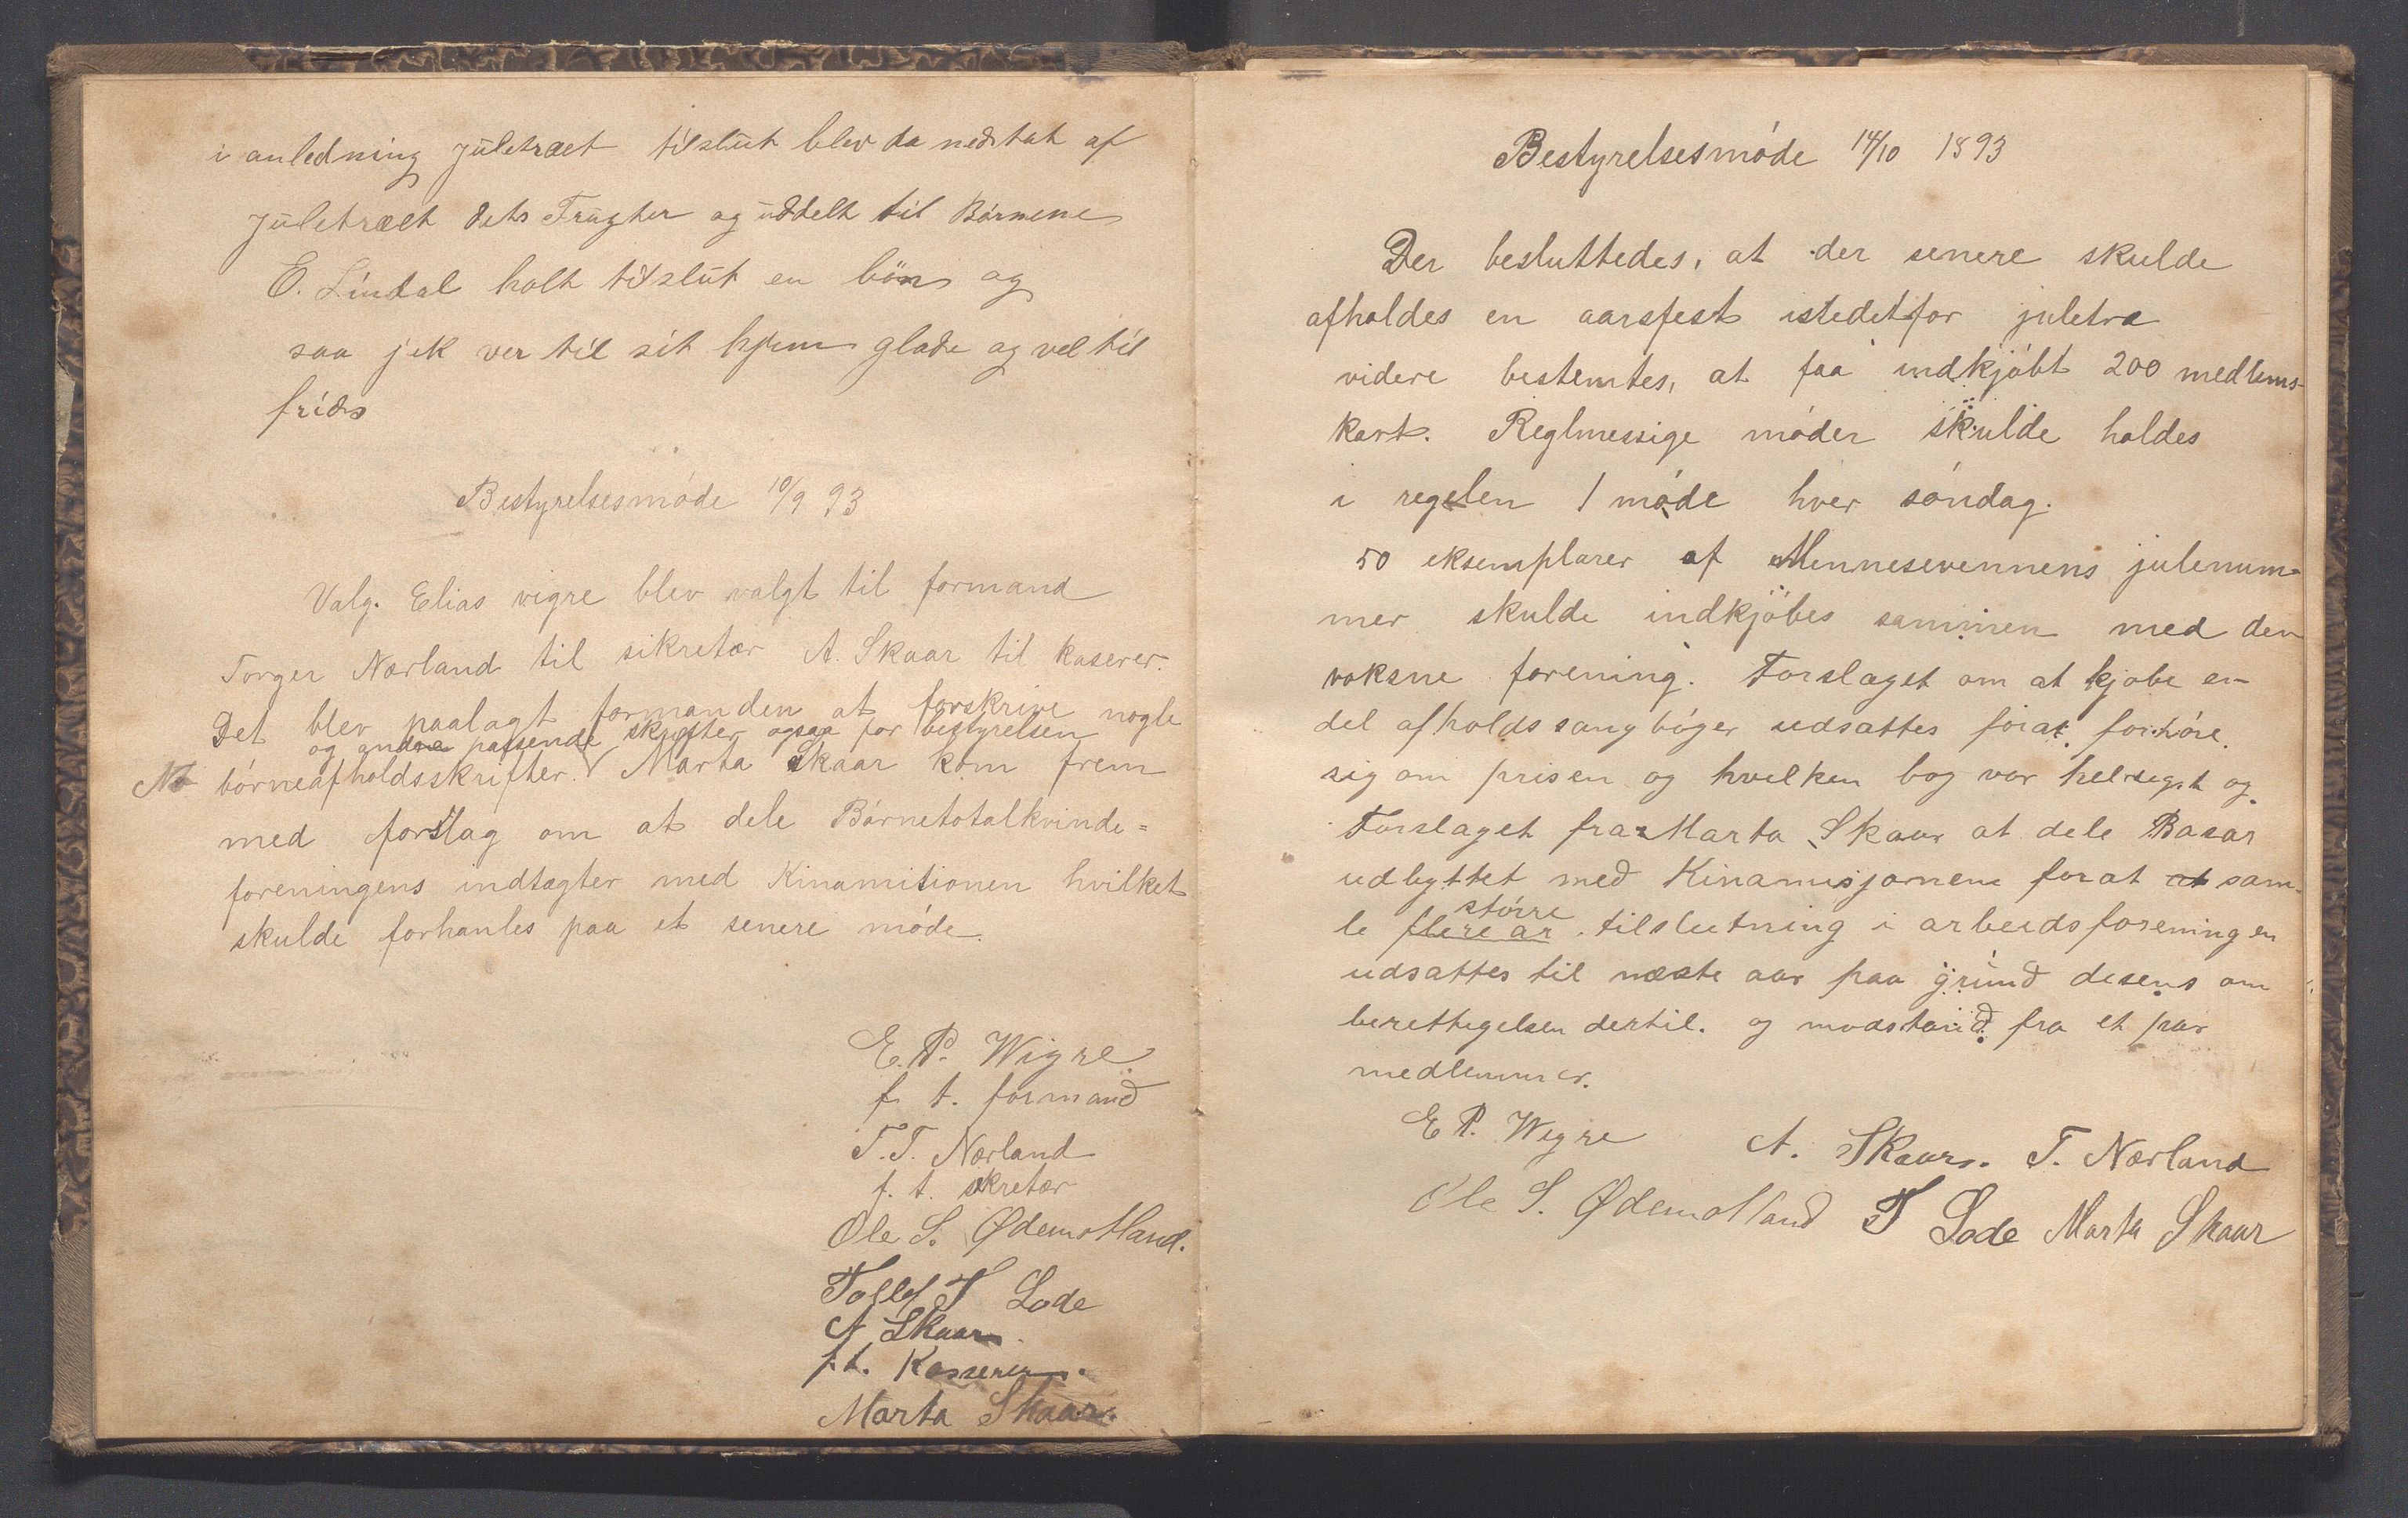 i anledning juletræet tilslut blev da nedtat af
juletræet dets Frugter og uddelt til Børnene
E. Lindal holt tilslut en bön og
saa jek ver til sit hjem glade og vel til
frids
Bestyrelsesmóde 10/9 93
Valg. Elias vigre blev valgt til formand
Torger Nærland til sikretær A. Skaar til kaserer.
Det blev paalagt formanden at forskrive nogle
og andre passende skrifter ogsaa for bestyrelsen
No børneafholdsskrifter. √ Marta Skaar kom frem
med forslag om at dele Børnetotalkvinde=
foreningens indtægter med Kinamisionen hvilket
skulde forhanles paa et senere móde.
E. P. Wigre
f. t. formand
T. T. Nærland
f. t. sekretær
Ole S. Ødemotland.
Tollef T Lode
A Skaar
f.t. Kasserer.
Marta Skaar.
Bestyrelsesmóde 14/10 1893
Der besluttedes, at der senere skulde
afholdes en aarsfest istedetfor juletræ
videre bestemtes, at faa indkjóbt 200 medlems-
kort. Reglmessige móder skulde holdes
i regelen 1 móde hver sóndag.
50 eksemplarer af Mennesevennens julenum=
mer skulde indkjöbes sammen med den
voksne forening. Forslaget om at kjøbe en
del afholdssangbóger udsattes forat forhóre
sig om prisen og hvilken bog var helsigst og
Forslaget fra Marta Skaar at dele Basar
udbyttet med Kinamisjonene forat at sam-
større
le flere ar tilslutning i arbeidsforeningen
udsattes til næste aar paa grund desens om
berettigelsen dertil. og modstand fra et par
medlemmer.
E P. Wigre A. Skaar. T. Nærland
Ole S. Ødemotland T Lode Marta Skaar